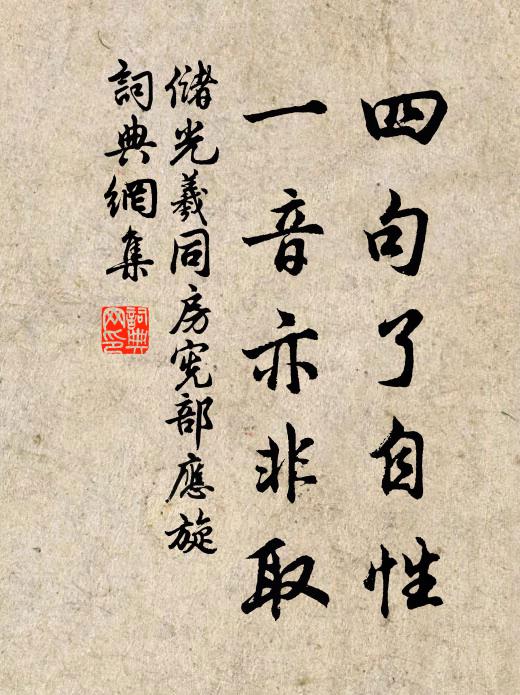 四句了自性
一音亦非取
儲光羲同房憲部應旋
詞典網集
詞典網印